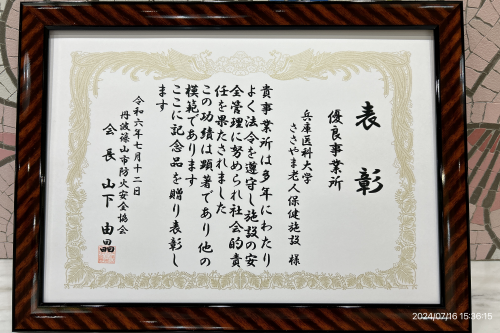 表彰
優良事業所
兵庫医科大学
ささやま老人保健施設 様
貴事業所は多年にわたり
よく法令を遵守し施設の安
全管理に努められ社会的責
任を果たされました
この功績は顕著であり他の
模範であります
ここに記念品を贈り表彰し
ます
令和六年七月十二日
丹波篠山市防火安全協会
会長 山下 由晶
2024/07/16 15:36:15